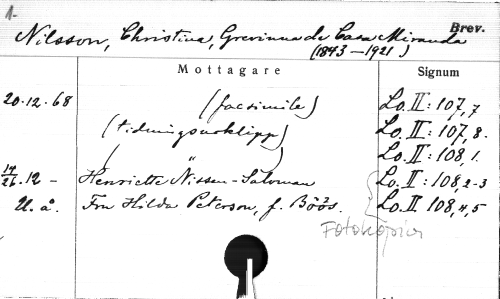 1.
Brev.
Nilsson, Christina, Grevinna de Casa Miranda
(1843-1921)
Mottagare Signum
20.12.68 (facsimile) Lo. II: 107,7
(tidningsurklipp) Lo. II: 107,8.
( " ) Lo. II: 108,1.
26.12- Henriette Nissen-Saloman Lo. II: 108,2-3
U.å. Fru Hilda Peterson, f. Böös. Lo. II. 108,4,5
Fotokopior